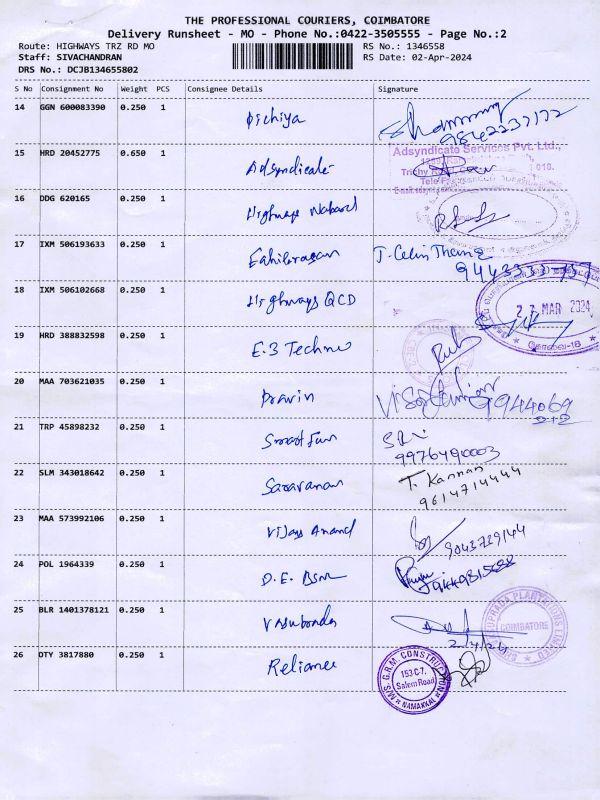 THE PROFESSIONAL COURIERS, COIMBATORE
Delivery Runsheet - MO - Phone No.:0422-3505555 - Page No.:2
Route: HIGHWAYS TRZ RD MO RS No.: 1346558
Staff: SIVACHANDRAN RS Date: 02-Apr-2024
DRS No.: DCJB134655802
S No Consignment No Weight PCS Consignee Details Signature
14 GGN 600083390 0.250 1 Pichiya
9842237172
15 HRD 20452775 0.650 1 Adsyndicate
Adsyndicate Services Pvt. Ltd.,
Trichy
16 DDG 620165 0.250 1 Highways Nabard
17 IXM 506193633 0.250 1
18 IXM 506102668 0.250 1 Highways QCD
27 MAR 2024
கோவை-18
19 HRD 388832598 0.250 1 E.3 Techno
20 MAA 703621035 0.250 1 Pravin
21 TRP 45898232 0.250 1
9976490003
22 SLM 343018642 0.250 1 Saravanan T. Kannan
9614714444
23 MAA 573992106 0.250 1 Vijay Anand
24 POL 1964339 0.250 1 D.E. BSNL
25 BLR 1401378121 0.250 1
COIMBATORE
2/4/24
26 OTY 3817880 0.250 1 Reliance
M/S. G.R.M. CONSTRUCTION
153 C-7,
Salem Road
NAMAKKAL